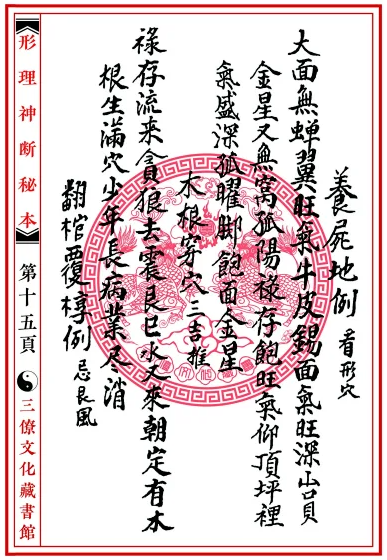 養屍地例 看形穴
大面無蟬翼旺氣牛皮錫面氣旺深
金星又無窩孤陽祿存飽旺氣仰頂坪裡
氣盛深孤曜脚飽面金星
木根穿穴 三吉推
祿存流来貪狼去震艮巳水又來朝定有木
根生滿穴少年長病業尽消
翻棺覆槨例 忌艮風
形理神断秘本
第十五頁
三僚文化藏書館